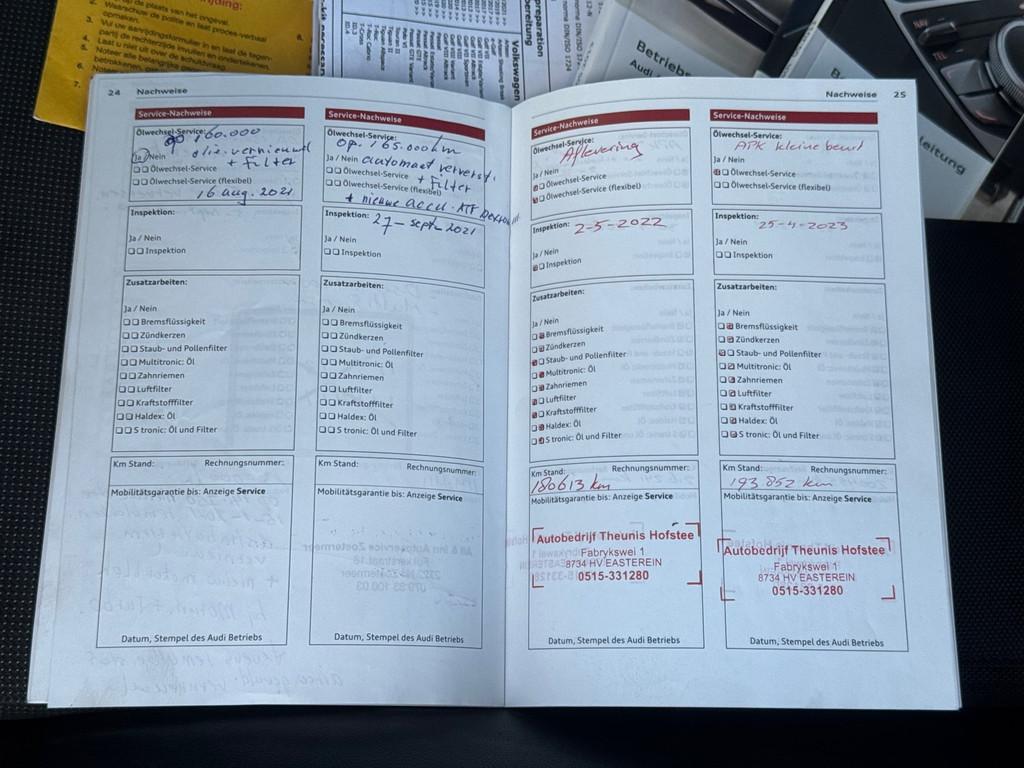 2. op de plaats van het ongeval.
Waarschuw de politie en laat proces-verbaal
opmaken.
3. Vul uw aanrijdingsformulier in en laat de tegen-
partij de rechterzijde invullen en ondertekenen.
4. Laat u niet uit over de schuldvraag.
5. Noteer alle belangrijke
6.
7. Noteer
8.
Volkswagen
Betriebs
Audi
Be
leitung
NAV
TEL
24 Nachweise
Service-Nachweise
Ölwechsel-Service:
op 160.000
Ja / Nein olie vernieuwd
+ filter
Ölwechsel-Service
Ölwechsel-Service (flexibel)
16 aug. 2021
Inspektion:
Ja / Nein
Inspektion
Zusatzarbeiten:
Ja / Nein
Bremsflüssigkeit
Zündkerzen
Staub- und Pollenfilter
Multitronic: Öl
Zahnriemen
Luftfilter
Kraftstofffilter
Haldex: Öl
S tronic: Öl und Filter
Km Stand: Rechnungsnummer:
Mobilitätsgarantie bis: Anzeige Service
Datum, Stempel des Audi Betriebs
Service-Nachweise
Ölwechsel-Service:
op. 165.000 km
Ja / Nein automaat ververst.
Ölwechsel-Service + filter
Ölwechsel-Service (flexibel)
+ nieuwe accu. ATF
Inspektion: 27 - sept - 2021
Ja / Nein
Inspektion
Zusatzarbeiten:
Ja / Nein
Bremsflüssigkeit
Zündkerzen
Staub- und Pollenfilter
Multitronic: Öl
Zahnriemen
Luftfilter
Kraftstofffilter
Haldex: Öl
S tronic: Öl und Filter
Km Stand: Rechnungsnummer:
Mobilitätsgarantie bis: Anzeige Service
Datum, Stempel des Audi Betriebs
Nachweise 25
Service-Nachweise
Ölwechsel-Service:
Aflevering
Ja / Nein
Ölwechsel-Service
Ölwechsel-Service (flexibel)
Inspektion: 2-5-2022
Ja / Nein
Inspektion
Zusatzarbeiten:
Ja / Nein
Bremsflüssigkeit
Zündkerzen
Staub- und Pollenfilter
Multitronic: Öl
Zahnriemen
Luftfilter
Kraftstofffilter
Haldex: Öl
S tronic: Öl und Filter
Km Stand: Rechnungsnummer:
180613 km
Mobilitätsgarantie bis: Anzeige Service
Autobedrijf Theunis Hofstee
Fabrykswei 1
8734 HV EASTEREIN
0515-331280
Datum, Stempel des Audi Betriebs
Service-Nachweise
Ölwechsel-Service:
APK kleine beurt
Ja / Nein
Ölwechsel-Service
Ölwechsel-Service (flexibel)
Inspektion:
25-4-2023
Ja / Nein
Inspektion
Zusatzarbeiten:
Ja / Nein
Bremsflüssigkeit
Zündkerzen
Staub- und Pollenfilter
Multitronic: Öl
Zahnriemen
Luftfilter
Kraftstofffilter
Haldex: Öl
S tronic: Öl und Filter
Km Stand: Rechnungsnummer:
193 852 km
Mobilitätsgarantie bis: Anzeige Service
Autobedrijf Theunis Hofstee
Fabrykswei 1
8734 HV EASTEREIN
0515-331280
Datum, Stempel des Audi Betriebs